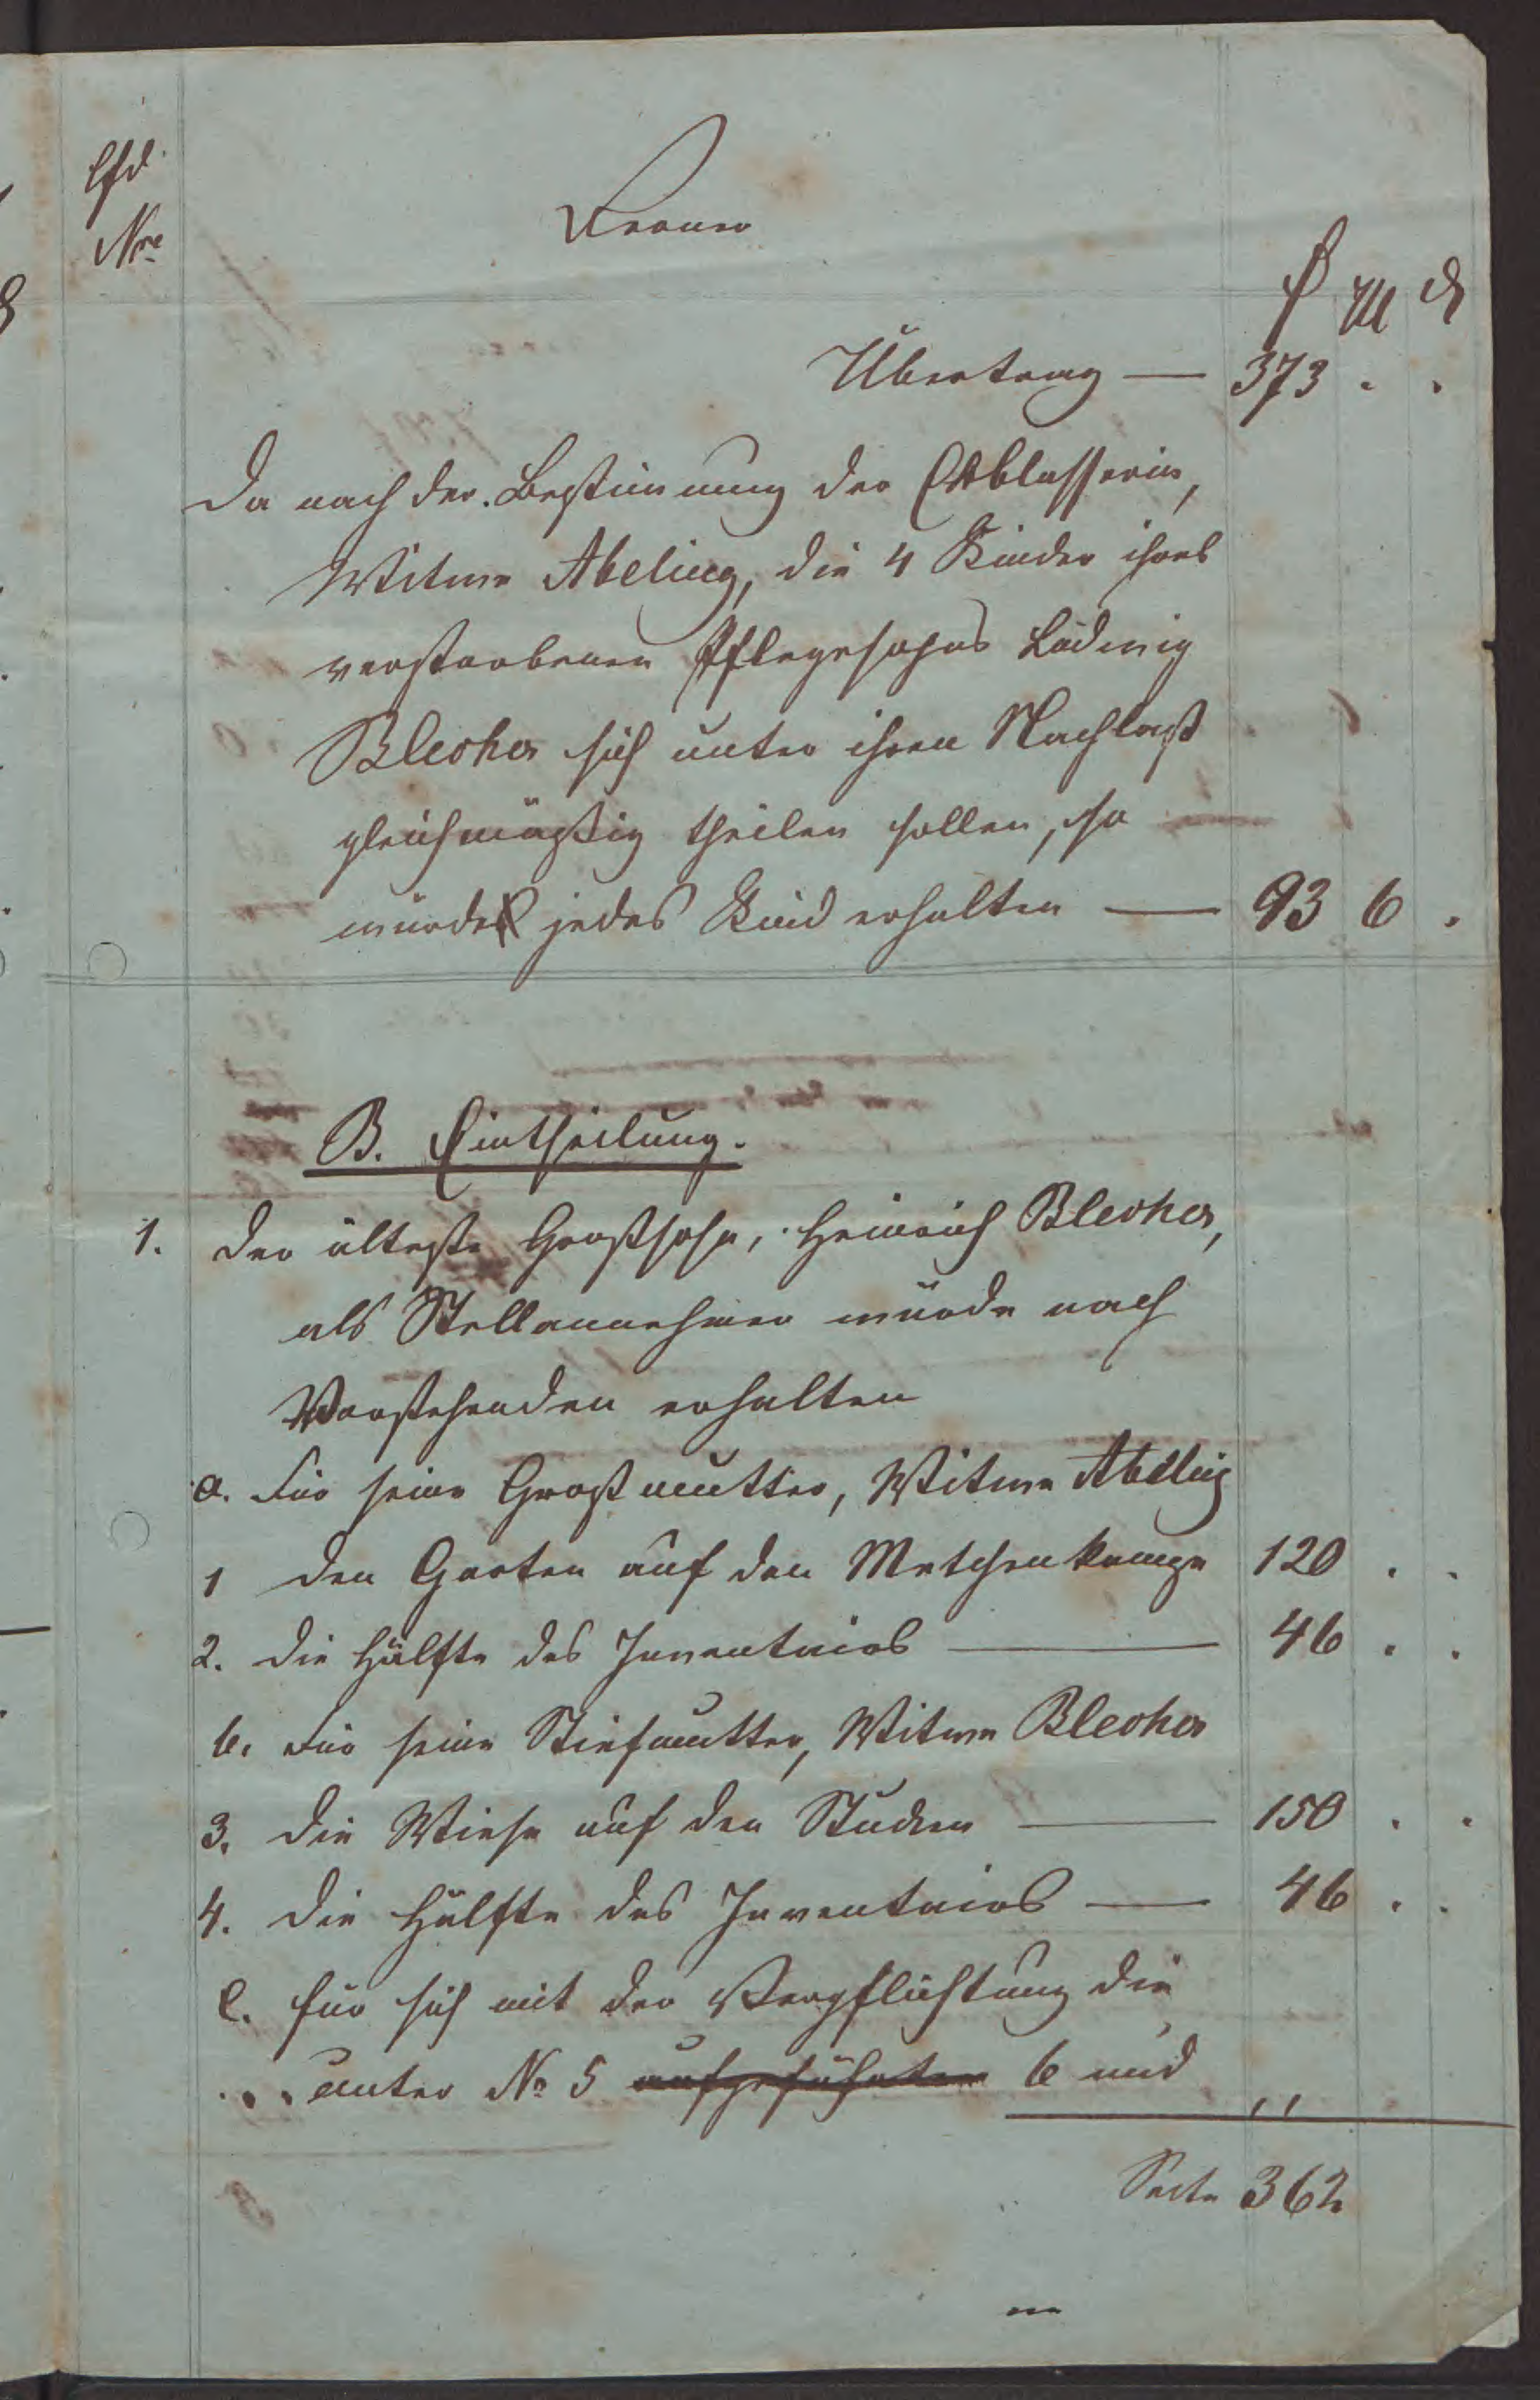 lfd
Nre
Ferner
₰ M ₰
Übertrag — 373 . .
Da nach der Bestimmung der Erblasserin,
Witwe Abeling, die 4 Kinder ihres
verstorbenen Pflegesohns Ludwig
Blecker sich unter ihren Nachlaß
gleichmäßig theilen sollen, so
würde jedes Kind erhalten — 93 6 .
B. Eintheilung.
1. Der älteste Großsohn, Heinrich Blecker,
als Stellannehmer würde nach
Vorstehenden erhalten
a. Für seine Großmutter, Witwe Abeling
1 den Garten auf den 120 . .
2. die Hälfte des Inventars — 46 . .
b. Für seine Stiefmutter, Witwe Blecker
3. die Wiese auf den — 150 . .
4. die Hälfte des Inventars — 46 . .
c. für sich mit der Verpflichtung die
unter No 5 aufgeführten 6 und
Seite 362